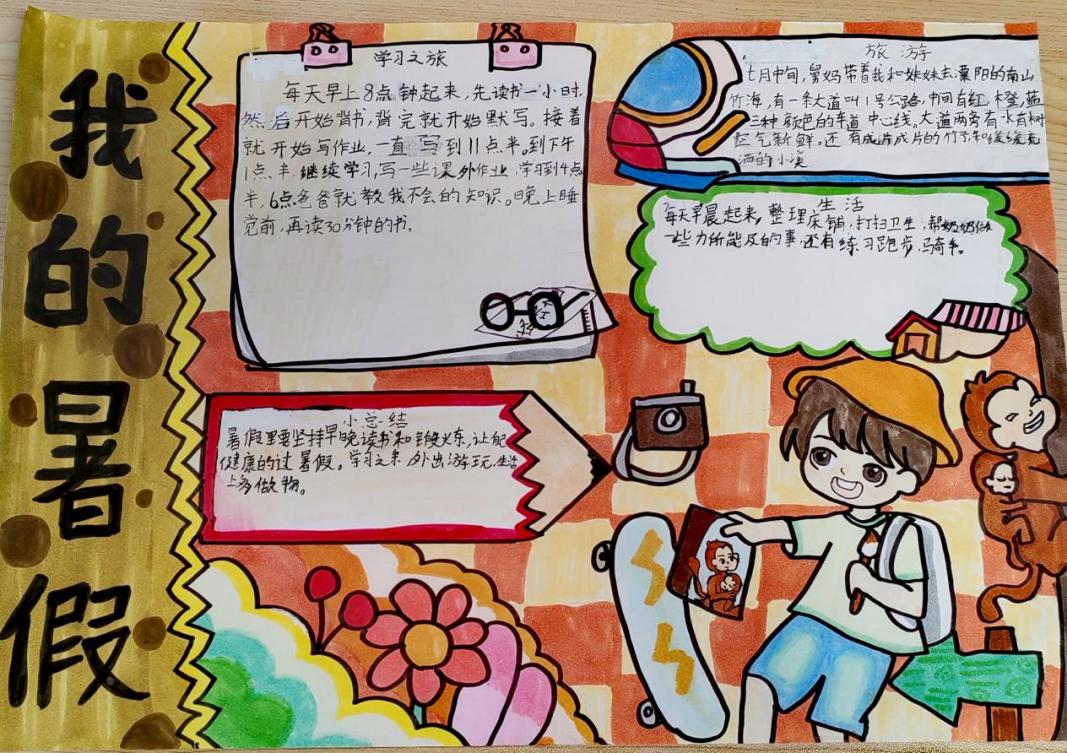 我的暑假
学习之旅
每天早上8点钟起来，先读书一小时，
然后开始背书，背完就开始默写。接着
就开始写作业，一直写到11点半。到下午
1点半继续学习，写一些课外作业，学习到4点
半，6点爸爸就教我不会的知识。晚上睡
觉前，再读30分钟的书。
旅游
七月中间，舅妈带着我和妹妹去溧阳的南山
竹海，有一条大道叫1号公路，中间有红、橙、蓝
三种颜色的车道中心线。大道两旁有水有树
空气新鲜。还有成片的竹子和缓缓流
淌的小溪
生活
每天早晨起来，整理床铺，打扫卫生，帮奶奶做
一些力所能及的事，还有练习跑步，骑车。
小总结
暑假里要坚持早晚读书和锻炼，让
健康的过暑假。学习之余，外出游玩，生活
上多做